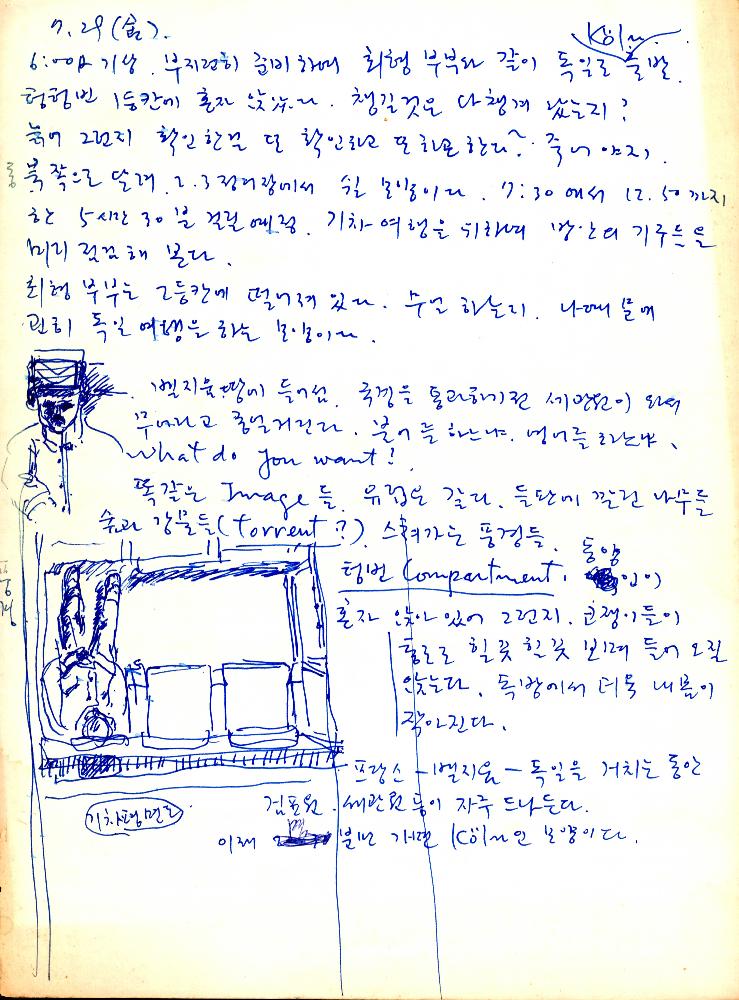 7.29(금).
Köln.
6:00A 기상. 부지런히 준비하여 최형 부부와 같이 독일로 출발.
텅텅번 1등칸에 혼자 앉았다. 챙길것은 다 챙겨 왔는지?
늙어 그런지 확인한걸 또 확인하고 또 확인한다~. 죽어야지.
북쪽으로 달려. 2.3 정거장에서 쉴 모양이다. 7:30에서 12.50까지
한 5시간 30분 걸릴 예정. 기차여행을 위하여
미리 점검해 본다.
최형 부부는 2등칸에 떨어져 있다. 무얼 하는지. 나때문에
괜히 독일여행을 하는 모양이다.
벨지움땅에 들어섬. 국경을 통과하기전 세관원이 와서
무어라고 중얼거린다. 불어를 하느냐. 영어를 하느냐.
What do you want!
똑같은 Image들. 유럽은 같다. 들판에 깔린 나무들
숲과 강물들(torrent?). 스쳐가는 풍경들.
텅번 Compartment. 동양인이
혼자 앉아 있어 그런지. 코쟁이들이
힐끗 힐끗 보며 들어 오질
않는다. 독방에서 더욱 내 몸이
작아진다.
프랑스 - 벨지움 - 독일을 거치는 동안
검표원. 세관원 등이 자주 드나든다.
기차평면도
이제 몇 분만 가면 Köln인 모양이다.